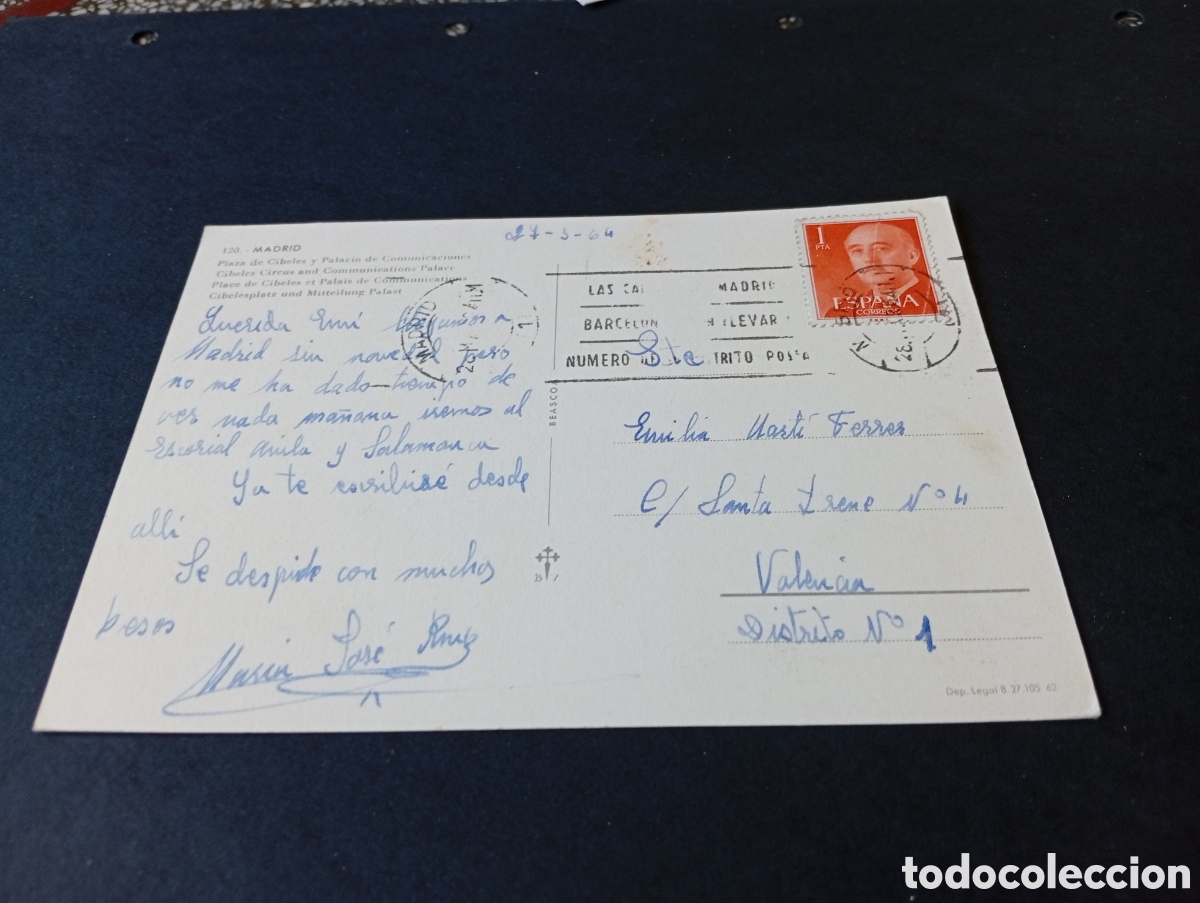 27-3-64
120. - MADRID
Plaza de Cibeles y Palacio de Comunicaciones
Cibeles Circus and Communications Palace
Place de Cibeles et Palais de Communications
Cibelesplatz und Mitteilung Palast
Querida Emi llegamos a
Madrid sin novedad pero
no me ha dado tiempo de
ver nada mañana iremos al
Escorial Avila y Salamanca
Ya te escribiré desde
allí
Se despide con muchos
besos
Maria José Ruiz
BEASCO
MADRID
1
LAS CA MADRID
BARCELON LLEVAR
NUMERO TRITO POSTA
1
PTA
ESPAÑA
CORREOS
Sta
Emilia Martí Ferrer
C/ Santa Irene Nº 4
Valencia
Distrito Nº 1
Dep. Legal B. 27.105 62
todocoleccion